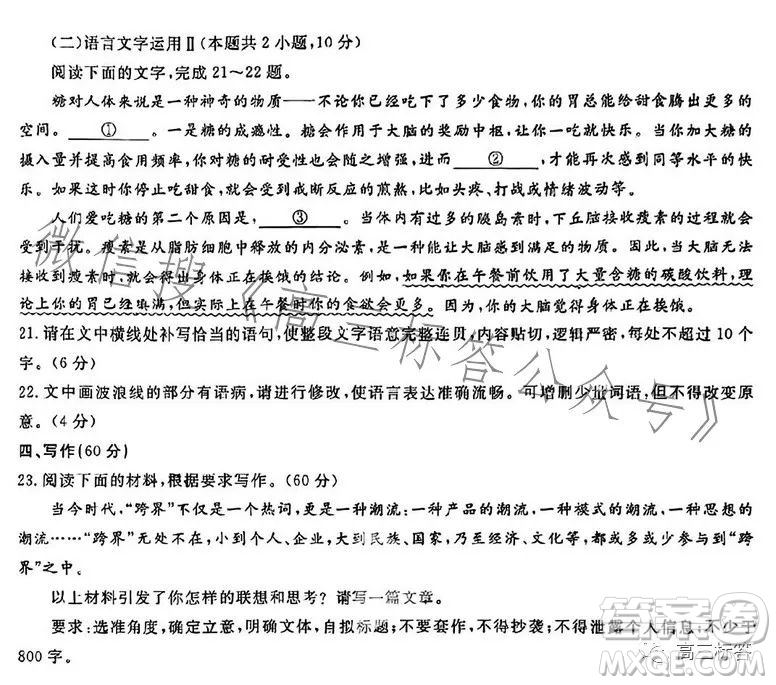 (二)语言文字运用Ⅱ(本题共2小题,10分)
阅读下面的文字,完成21~22题。
糖对人体来说是一种神奇的物质——不论你已经吃下了多少食物,你的胃总能给甜食腾出更多的
空间。 ① 。一是糖的成瘾性。糖会作用于大脑的奖励中枢,让你一吃就快乐。当你加大糖的
摄入量并提高食用频率,你对糖的耐受性也会随之增强,进而 ② ,才能再次感到同等水平的快
乐。如果这时你停止吃甜食,则会受到戒断反应的煎熬,比如头疼、打战或情绪波动等。
人们爱吃糖的第二个原因是, ③ 。当体内有过多的胰岛素时,下丘脑接收瘦素的过程就会
受到干扰。瘦素是从脂肪细胞中释放的内分泌素,是一种能让大脑感到满足的物质。因此,当大脑无法
接收到瘦素时,就会得出身体正在挨饿的结论。例如,如果你在午餐前饮用了大量含糖的碳酸饮料,理
论上你的胃已经填满,但实际上在午餐时你的食欲会更多。因为,你的大脑觉得身体正在挨饿。
21.请在文中横线处补写恰当的语句,使整段文字语意完整连贝,内容贴切,逻辑严密,每处不超过10个
字。(6分)
22.文中画波浪线的部分有语病,请进行修改,使语言表达准确流畅。可增删少量词语,但不得改变原
意。(4分)
四、写作(60分)
23.阅读下面的材料,根据要求写作。(60分)
当今时代,“跨界”不仅是一个热词,更是一种潮流:一种产品的潮流,一种模式的潮流,一种思想的
潮流……“跨界”无处不在,小到个人、企业,大到民族、国家,乃至经济、文化,都或多或少参与到“跨
界”之中。
以上材料引发了你怎样的联想和思考?请写一篇文章。
要求:选准角度,确定立意,明确文体,自拟标题;不要套作,不得抄袭;不得泄露个人信息;不少于
800字。
微信搜《高三标答公众号》
答案圈
高三标答